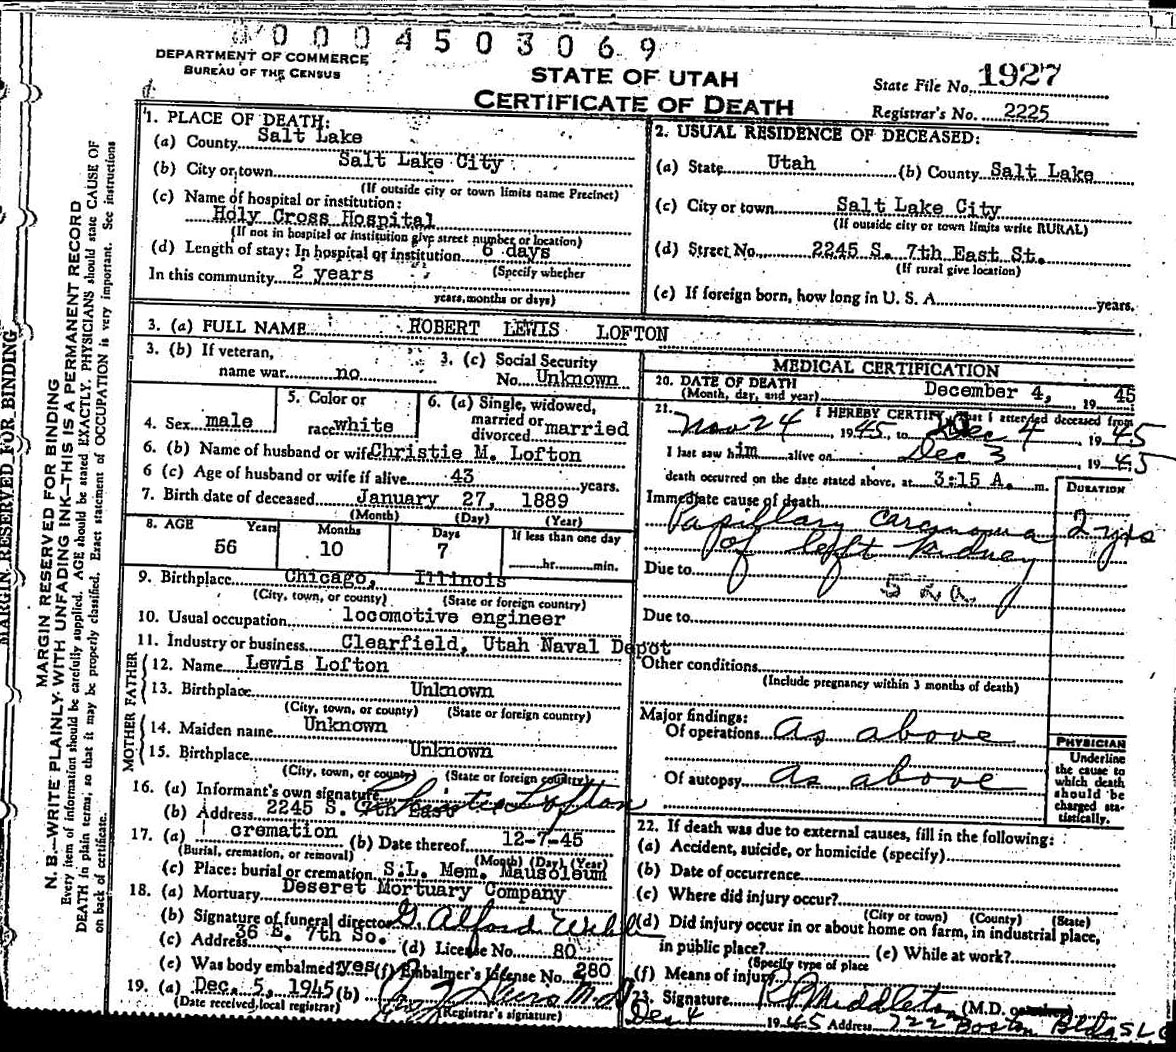 0004503069
DEPARTMENT OF COMMERCE
BUREAU OF THE CENSUS
STATE OF UTAH
CERTIFICATE OF DEATH
State File No. 1927
Registrar's No. 2225
MARGIN RESERVED FOR BINDING
MARGIN RESERVED FOR BINDING
N. B.—WRITE PLAINLY, WITH UNFADING INK—THIS IS A PERMANENT RECORD
Every item of information should be carefully supplied. AGE should be stated EXACTLY. PHYSICIANS should state CAUSE OF
DEATH in plain terms, so that it may be properly classified. Exact statement of OCCUPATION is very important. See instructions
on back of certificate.
1. PLACE OF DEATH:
(a) County Salt Lake
(b) City or town Salt Lake City
(If outside city or town limits name Precinct)
(c) Name of hospital or institution:
Holy Cross Hospital
(If not in hospital or institution give street number or location)
(d) Length of stay: In hospital or institution 6 days
(Specify whether
In this community 2 years
years, months or days)
2. USUAL RESIDENCE OF DECEASED:
(a) State Utah (b) County Salt Lake
(c) City or town Salt Lake City
(If outside city or town limits write RURAL)
(d) Street No. 2245 S. 7th East St.
(If rural give location)
(e) If foreign born, how long in U. S. A. years.
3. (a) FULL NAME ROBERT LEWIS LOFTON
3. (b) If veteran,
name war no
3. (c) Social Security
No. Unknown
4. Sex male
5. Color or
race white
6. (a) Single, widowed,
married or
divorced married
6. (b) Name of husband or wife Christie M. Lofton
6 (c) Age of husband or wife if alive 43 years.
7. Birth date of deceased January 27, 1889
(Month) (Day) (Year)
8. AGE Years Months Days If less than one day
56 10 7 hr. min.
9. Birthplace Chicago, Illinois
(City, town, or county) (State or foreign country)
10. Usual occupation locomotive engineer
11. Industry or business Clearfield, Utah Naval Depot
FATHER
12. Name Lewis Lofton
13. Birthplace Unknown
(City, town, or county) (State or foreign country)
MOTHER
14. Maiden name Unknown
15. Birthplace Unknown
(City, town, or county) (State or foreign country)
16. (a) Informant's own signature Christie Lofton
(b) Address 2245 S. 7th East
17. (a) cremation (b) Date thereof 12-7-45
(Burial, cremation, or removal) (Month) (Day) (Year)
(c) Place: burial or cremation S.L. Mem. Mausoleum
18. (a) Mortuary Deseret Mortuary Company
(b) Signature of funeral director G. Alford Webb
(c) Address 36 E. 7th So. (d) License No. 80
(e) Was body embalmed? yes (f) Embalmer's License No. 280
19. (a) Dec. 5, 1945 (b) M.D.
(Date received local registrar) (Registrar's signature)
MEDICAL CERTIFICATION
20. DATE OF DEATH
(Month, day, and year) December 4, 19 45
21. I HEREBY CERTIFY, that I attended deceased from
Nov 24, 1945, to Dec 4, 1945
I last saw him alive on Dec 3, 1945
death occurred on the date stated above, at 3:15 A. m.
DURATION
Immediate cause of death
Papillary carcinoma 2 yrs
of left kidney
Due to
Due to
Other conditions
(Include pregnancy within 3 months of death)
Major findings:
Of operations As above
Of autopsy As above
PHYSICIAN
Underline
the cause to
which death
should be
charged sta-
tistically.
22. If death was due to external causes, fill in the following:
(a) Accident, suicide, or homicide (specify)
(b) Date of occurrence
(c) Where did injury occur?
(City or town) (County) (State)
(d) Did injury occur in or about home on farm, in industrial place,
in public place? (e) While at work?
(Specify type of place
(f) Means of injury
23. Signature Middleton (M.D. or other)
Dec 4 1945 Address 722 Boston Bldg SLC